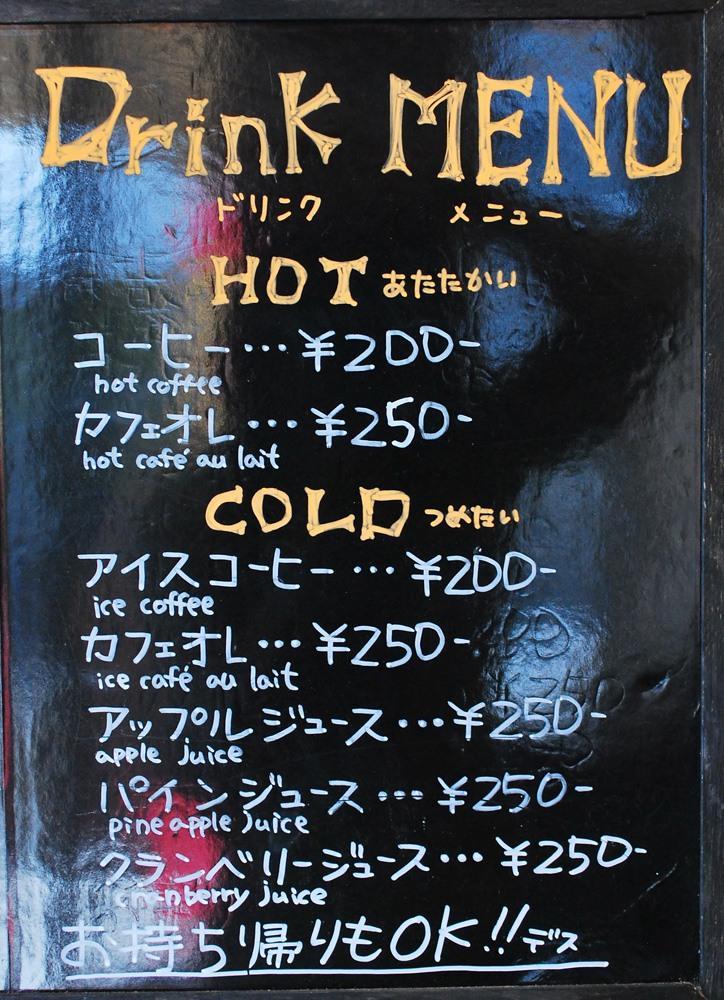 Drink MENU
ドリンク メニュー
HOT あたたかい
コーヒー…¥200-
hot coffee
カフェオレ…¥250-
hot café au lait
COLD つめたい
アイスコーヒー…¥200-
ice coffee
カフェオレ…¥250-
ice café au lait
アップルジュース…¥250-
apple juice
パインジュース…¥250-
pine apple juice
クランベリージュース…¥250-
cranberry juice
お持ち帰りもOK!!デス